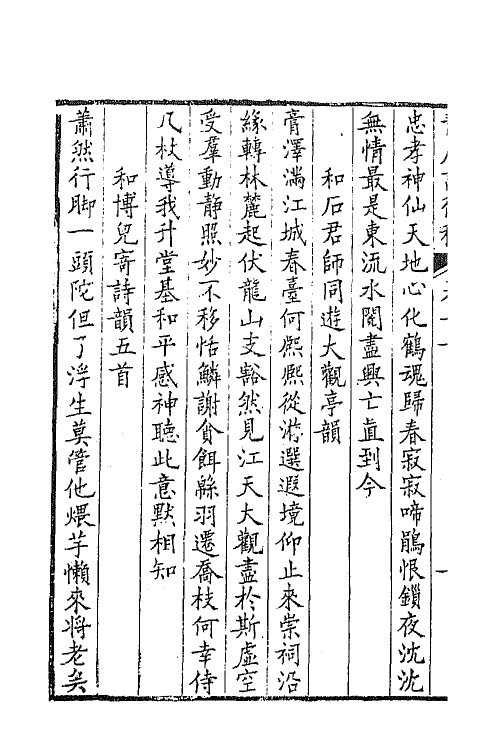 忠孝神仙天地心化鶴魂歸春寂寂啼鵑恨鎖夜沈沈
無情最是東流水閱盡興亡直到今
和石君師同遊大觀亭韻
膏澤滿江城春臺何熙熙從游選遐境仰止來崇祠沿
緣轉林麓起伏龍山支豁然見江天大觀盡於斯虛空
受羣動靜照妙不移恬鱗謝貪餌緜羽遷喬枝何幸侍
几杖導我升堂基和平感神聽此意默相知
和博兒寄詩韻五首
蕭然行脚一頭陀但了浮生莫管他煨芋懶來將老矣